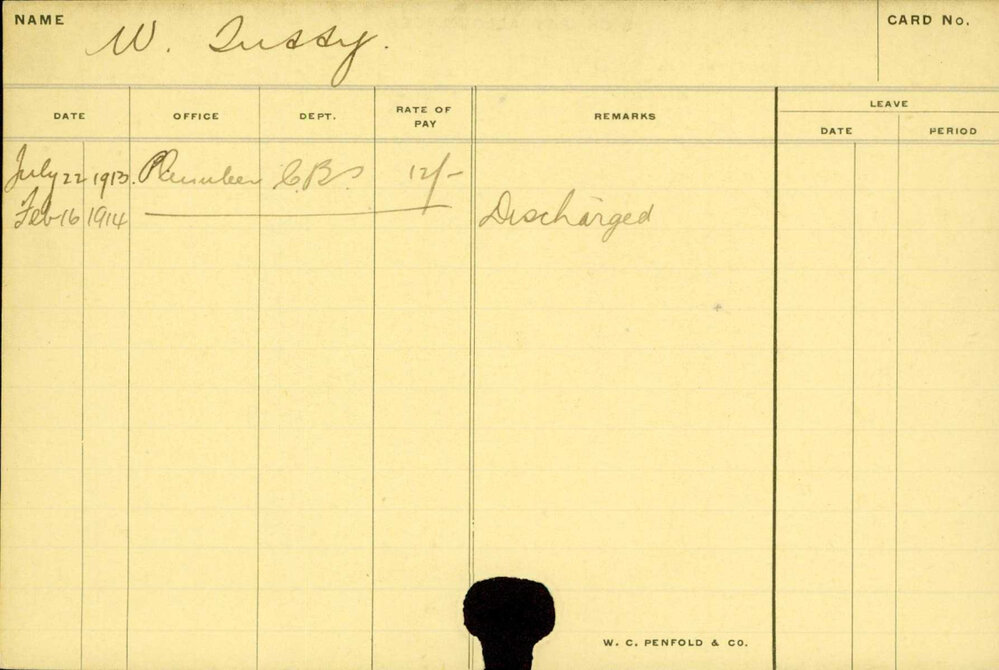 NAME W. Tussy. CARD No.
DATE OFFICE DEPT. RATE OF PAY REMARKS LEAVE
DATE PERIOD
July 22 1913. Plumber C.B.S 12/-
Feb 16 1914 Discharged
W. C. PENFOLD & CO.